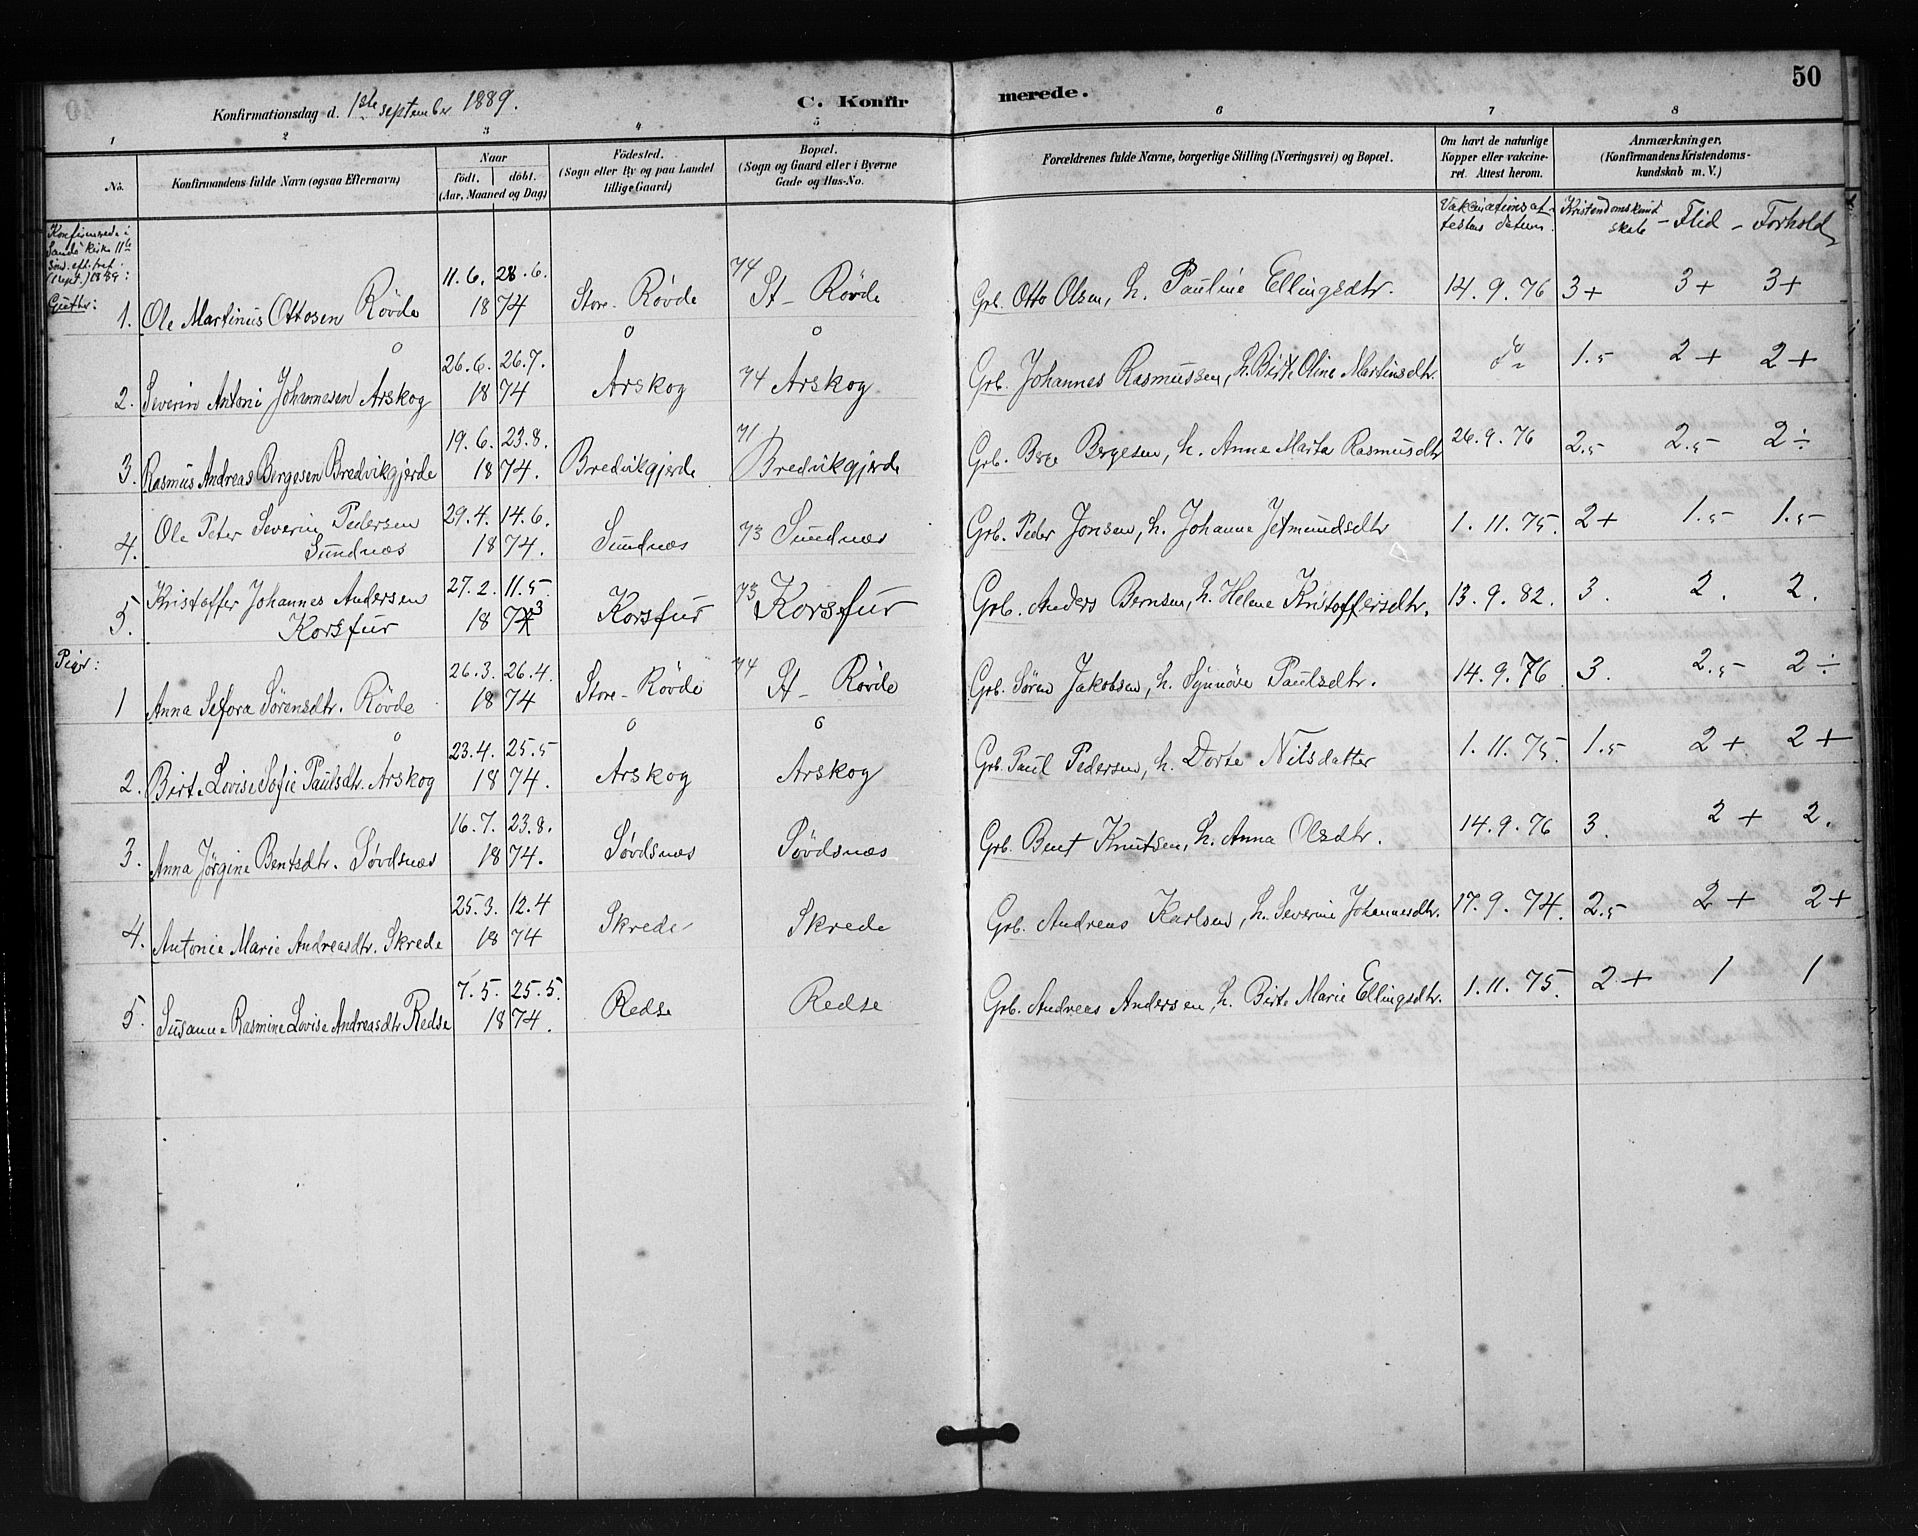 50
Konfirmationsdag d. 1ste september 1889.
C. Konfir merede.
1 2 3 4 5 6 7 8
No.
Konfirmandens fulde Navn (ogsaa Efternavn)
Naar
födt. döbt.
(Aar, Maaned og Dag)
Födested.
(Sogn eller By og paa Landet
tillige Gaard)
Bopæl.
(Sogn og Gaard eller i Byerne
Gade og Hus-No.
Forældrenes fulde Navne, borgerlige Stilling (Næringsvei) og Bopæl.
Om havt de naturlige
Kopper eller vakcine-
ret. Attest herom.
Anmærkninger.
(Konfirmandens Kristendoms-
kundskab m. V.)
Vakcinationsat-
testens datum.
Kristendomskund
skab - Flid - Forhold
Konfirmerede i
Sandø kirke 11te
sønd. eft. tref.
(1 sept.) 1889:
Gutter:
11.6. 28.6. 74
1. Ole Martinus Ottosen Røvde 18 74 Store-Røvde St-Røvde Grb. Otto Olsen, h. Pauline Ellingsdtr. 14.9.76 3+ 3+ 3+
26.6. 26.7.
2. Severin Antoni Johannesen Årskog 18 74 Årskog 74 Årskog Grb. Johannes Rasmussen, h. Birte Oline Martinsdtr. do 1.5 2+ 2+
19.6. 23.8. 71
3. Rasmus Andreas Bergesen Bredvikgjerde 18 74. Bredvikgjerde Bredvikgjerde Grb. Berge Bergesen, h. Anne Marta Rasmusdtr 26.9.76 2.5 2.5 2÷
Ole Peter Severin Pedersen 29.4. 14.6.
4. Sundnæs 18 74. Sundnæs 73 Sundnæs Grb. Peder Jonsen, h. Johanne Jetmundsdtr 1.11.75. 2+ 1.5 1.5
Kristoffer Johannes Andersen 27.2. 11.5.
5. Korsfur 18 73 Korsfur 73 Korsfur Grb. Anders Bernsen, h. Helene Kristoffersdtr. 13.9.82. 3. 2. 2.
Piger:
26.3. 26.4. 74
1 Anna Sefora Sørensdtr. Røvde 18 74 Store-Røvde St-Røvde Grb. Søren Jakobsen, h. Synnøve Paulsdtr. 14.9.76 3. 2.5 2÷
23.4. 25.5
2. Birte Lovise Sofie Paulsdtr. Årskog 18 74. Årskog Årskog Grb. Paul Pedersen, h. Dorte Nilsdatter 1.11.75. 1.5 2+ 2+
16.7. 23.8.
3. Anna Jørgine Bentsdtr. Søvdsnæs 18 74. Søvdsnæs Søvdsnæs Grb. Bent Knutsen, h. Anna Olsdtr. 14.9.76 3. 2+ 2.
25.3. 12.4
4. Antonie Marie Andreasdtr. Skrede 18 74 Skrede Skrede Grb. Andreas Karlsen, h. Severine Johannesdtr. 17.9.74. 2.5 2+ 2+
7.5. 25.5.
5. Susanne Rasmine Lovise Andreasdtr Redse 18 74. Redse Redse Grb. Andreas Andersen, h. Birte Marie Ellingsdtr. 1.11.75. 2+ 1 1